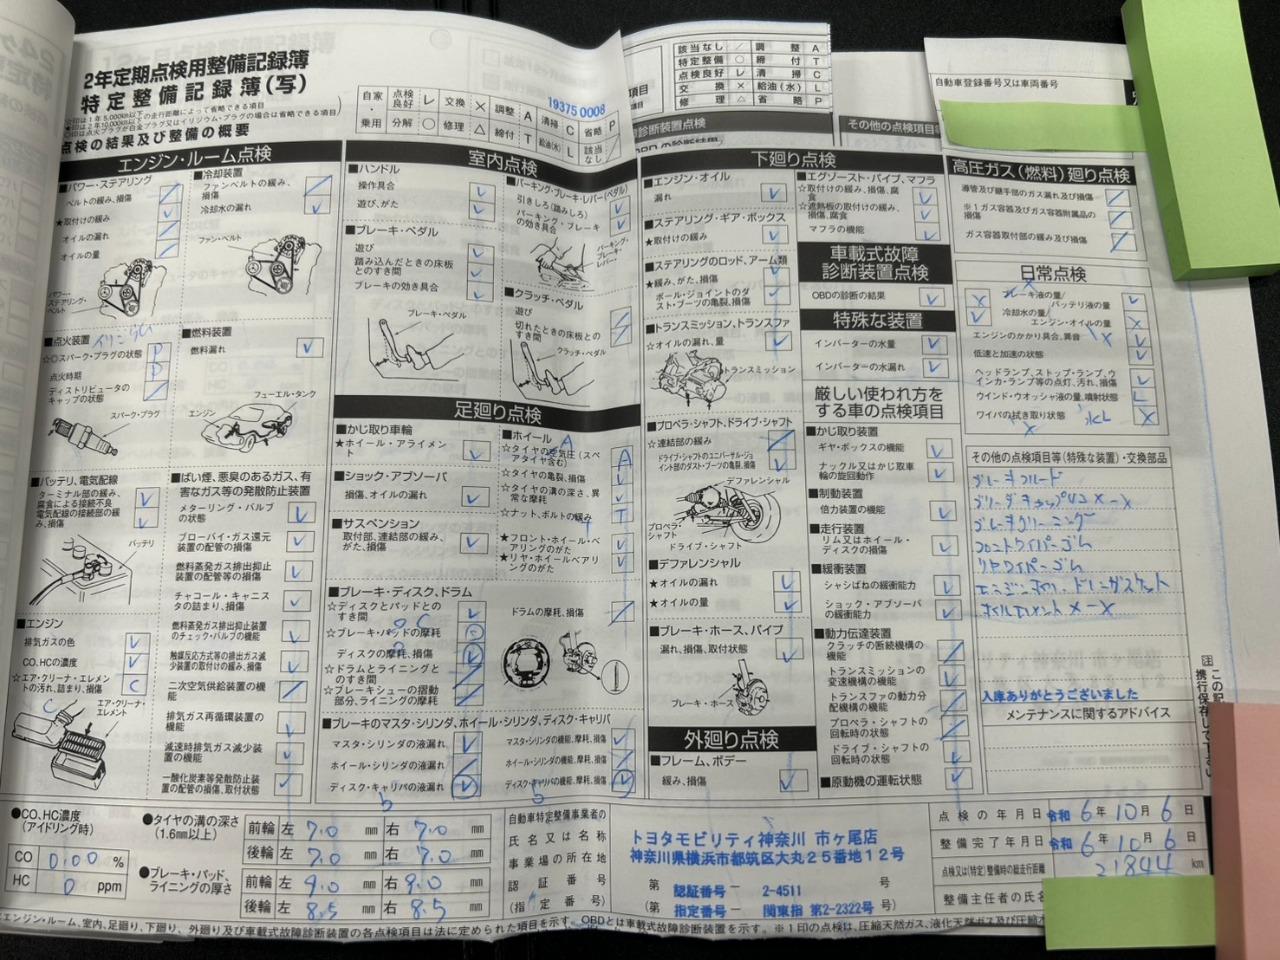 2年定期点検用整備記録簿
特定整備記録簿(写)
点検の結果及び整備の概要
自家 点検良好 レ 交換 × 調整 A 清掃 C 省略 P
乗用 分解 ○ 修理 △ 締付 T 給油(水) L 該当なし /
19375 0008
該当なし / 調整 A
特定整備 ○ 締付 T
点検良好 レ 清掃 C
交換 × 給油(水) L
修理 △ 省略 P
自動車登録番号又は車両番号
エンジン・ルーム点検
■パワー・ステアリング
ベルトの緩み、損傷
★取付けの緩み
オイルの漏れ
オイルの量
パワー・ステアリング・ベルト
■冷却装置
ファンベルトの緩み、損傷
冷却水の漏れ
ファン・ベルト
■点火装置
☆○スパーク・プラグの状態 P
点火時期 P
ディストリビュータのキャップの状態
スパーク・プラグ
■燃料装置
燃料漏れ
フューエル・タンク
エンジン
■バッテリ、電気配線
ターミナル部の緩み、腐食による接続不良
電気配線の接続部の緩み、損傷
バッテリ
■エンジン
排気ガスの色
CO、HCの濃度
☆エア・クリーナ・エレメントの汚れ、詰まり、損傷 C
エア・クリーナ・エレメント
■ばい煙、悪臭のあるガス、有害なガス等の発散防止装置
メターリング・バルブの状態
ブローバイ・ガス還元装置の配管の損傷
燃料蒸発ガス排出抑止装置の配管等の損傷
チャコール・キャニスタの詰まり、損傷
燃料蒸発ガス排出抑止装置のチェック・バルブの機能
触媒反応方式等の排出ガス減少装置の取付けの緩み、損傷
二次空気供給装置の機能
排気ガス再循環装置の機能
減速時排気ガス減少装置の機能
一酸化炭素等発散防止装置の配管の損傷、取付状態
室内点検
■ハンドル
操作具合
遊び、がた
■ブレーキ・ペダル
遊び
踏み込んだときの床板とのすき間
ブレーキの効き具合
ブレーキ・ペダル
■パーキング・ブレーキ・レバー(ペダル)
引きしろ(踏みしろ)
パーキング・ブレーキの効き具合
パーキング・ブレーキ・レバー
■クラッチ・ペダル
遊び
切れたときの床板とのすき間
クラッチ・ペダル
足廻り点検
■かじ取り車輪
★ホイール・アライメント
■ショック・アブソーバ
損傷、オイルの漏れ
■サスペンション
取付部、連結部の緩み、がた、損傷
■ホイール
☆タイヤの空気圧(スペアタイヤ含む) A
☆タイヤの亀裂、損傷
☆タイヤの溝の深さ、異常な摩耗
☆ナット、ボルトの緩み T
★フロント・ホイール・ベアリングのがた
★リヤ・ホイールベアリングのがた
■ブレーキ・ディスク、ドラム
☆ディスクとパッドとのすき間
☆ブレーキ・パッドの摩耗
ディスクの摩耗、損傷
☆ドラムとライニングとのすき間
☆ブレーキシューの摺動部分、ライニングの摩耗
ドラムの摩耗、損傷
■ブレーキのマスタ・シリンダ、ホイール・シリンダ、ディスク・キャリパ
マスタ・シリンダの液漏れ
ホイール・シリンダの液漏れ
ディスク・キャリパの液漏れ
マスタ・シリンダの機能、摩耗、損傷
ホイール・シリンダの機能、摩耗、損傷
ディスク・キャリパの機能、摩耗、損傷
下廻り点検
■エンジン・オイル
漏れ
■ステアリング・ギア・ボックス
★取付けの緩み
■ステアリングのロッド、アーム類
★緩み、がた、損傷
ボール・ジョイントのダスト・ブーツの亀裂、損傷
■トランスミッション、トランスファ
☆オイルの漏れ、量
トランスミッション
■プロペラ・シャフト、ドライブ・シャフト
☆連結部の緩み
ドライブ・シャフトのユニバーサル・ジョイント部のダスト・ブーツの亀裂、損傷
デファレンシャル
プロペラ・シャフト
ドライブ・シャフト
■デファレンシャル
★オイルの漏れ
★オイルの量
■ブレーキ・ホース、パイプ
漏れ、損傷、取付状態
ブレーキ・ホース
外廻り点検
■フレーム、ボデー
緩み、損傷
■エグゾースト・パイプ、マフラ
☆取付けの緩み、損傷、腐食
☆遮熱板の取付けの緩み、損傷、腐食
マフラの機能
車載式故障診断装置点検
OBDの診断の結果
特殊な装置
インバーターの水量
インバーターの水漏れ
厳しい使われ方をする車の点検項目
■かじ取り装置
ギヤ・ボックスの機能
ナックル又はかじ取車輪の旋回動作
■制動装置
倍力装置の機能
■走行装置
リム又はホイール・ディスクの損傷
■緩衝装置
シャシばねの緩衝能力
ショック・アブソーバの緩衝能力
■動力伝達装置
クラッチの断続機構の機能
トランスミッションの変速機構の機能
トランスファの動力分配機構の機能
プロペラ・シャフトの回転時の状態
ドライブ・シャフトの回転時の状態
■原動機の運転状態
高圧ガス(燃料)廻り点検
導管及び継手部のガス漏れ及び損傷
※1ガス容器及びガス容器附属品の損傷
ガス容器取付部の緩み及び損傷
日常点検
ブレーキ液の量
バッテリ液の量
冷却水の量
エンジン・オイルの量
エンジンのかかり具合、異音
低速と加速の状態
ヘッドランプ、ストップ・ランプ、ウインカ・ランプ等の点灯、汚れ、損傷
ウインド・ウオッシャ液の量、噴射状態 L
ワイパの拭き取り状態 ×
その他の点検項目等(特殊な装置)・交換部品
ブレーキフルード
ブリーダキャップ
ブレーキクリーニング
フロントワイパーゴム
リヤワイパーゴム
エンジンオイル ドレンガスケット
オイルエレメント
入庫ありがとうございました
メンテナンスに関するアドバイス
●CO、HC濃度(アイドリング時)
CO 0.00 %
HC 0 ppm
●タイヤの溝の深さ(1.6mm以上)
前輪 左 7.0 mm 右 7.0 mm
後輪 左 7.0 mm 右 7.0 mm
●ブレーキ・パッド、ライニングの厚さ
前輪 左 9.0 mm 右 9.0 mm
後輪 左 8.5 mm 右 8.5 mm
自動車特定整備事業者の
氏名又は名称
事業場の所在地
認証番号
(指定番号)
トヨタモビリティ神奈川 市ヶ尾店
神奈川県横浜市都筑区大丸25番地12号
第 認証番号ー 2-4511 号
(第 指定番号ー 関東指 第2-2322号 号)
点検の年月日 令和 6年 10月 6日
整備完了年月日 令和 6年 10月 6日
点検又は(特定)整備時の総走行距離 21844 km
整備主任者の氏名
エンジン・ルーム、室内、足廻り、下廻り、外廻り及び車載式故障診断装置の各点検項目は法に定められた項目を示す。OBDとは車載式故障診断装置を示す。※1印の点検は、圧縮天然ガス、液化天然ガス及び圧縮水